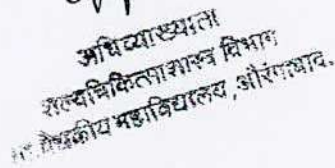 अधिव्याख्याता
शल्यचिकित्साशास्त्र विभाग
वैद्यकीय महाविद्यालय, औरंगाबाद.